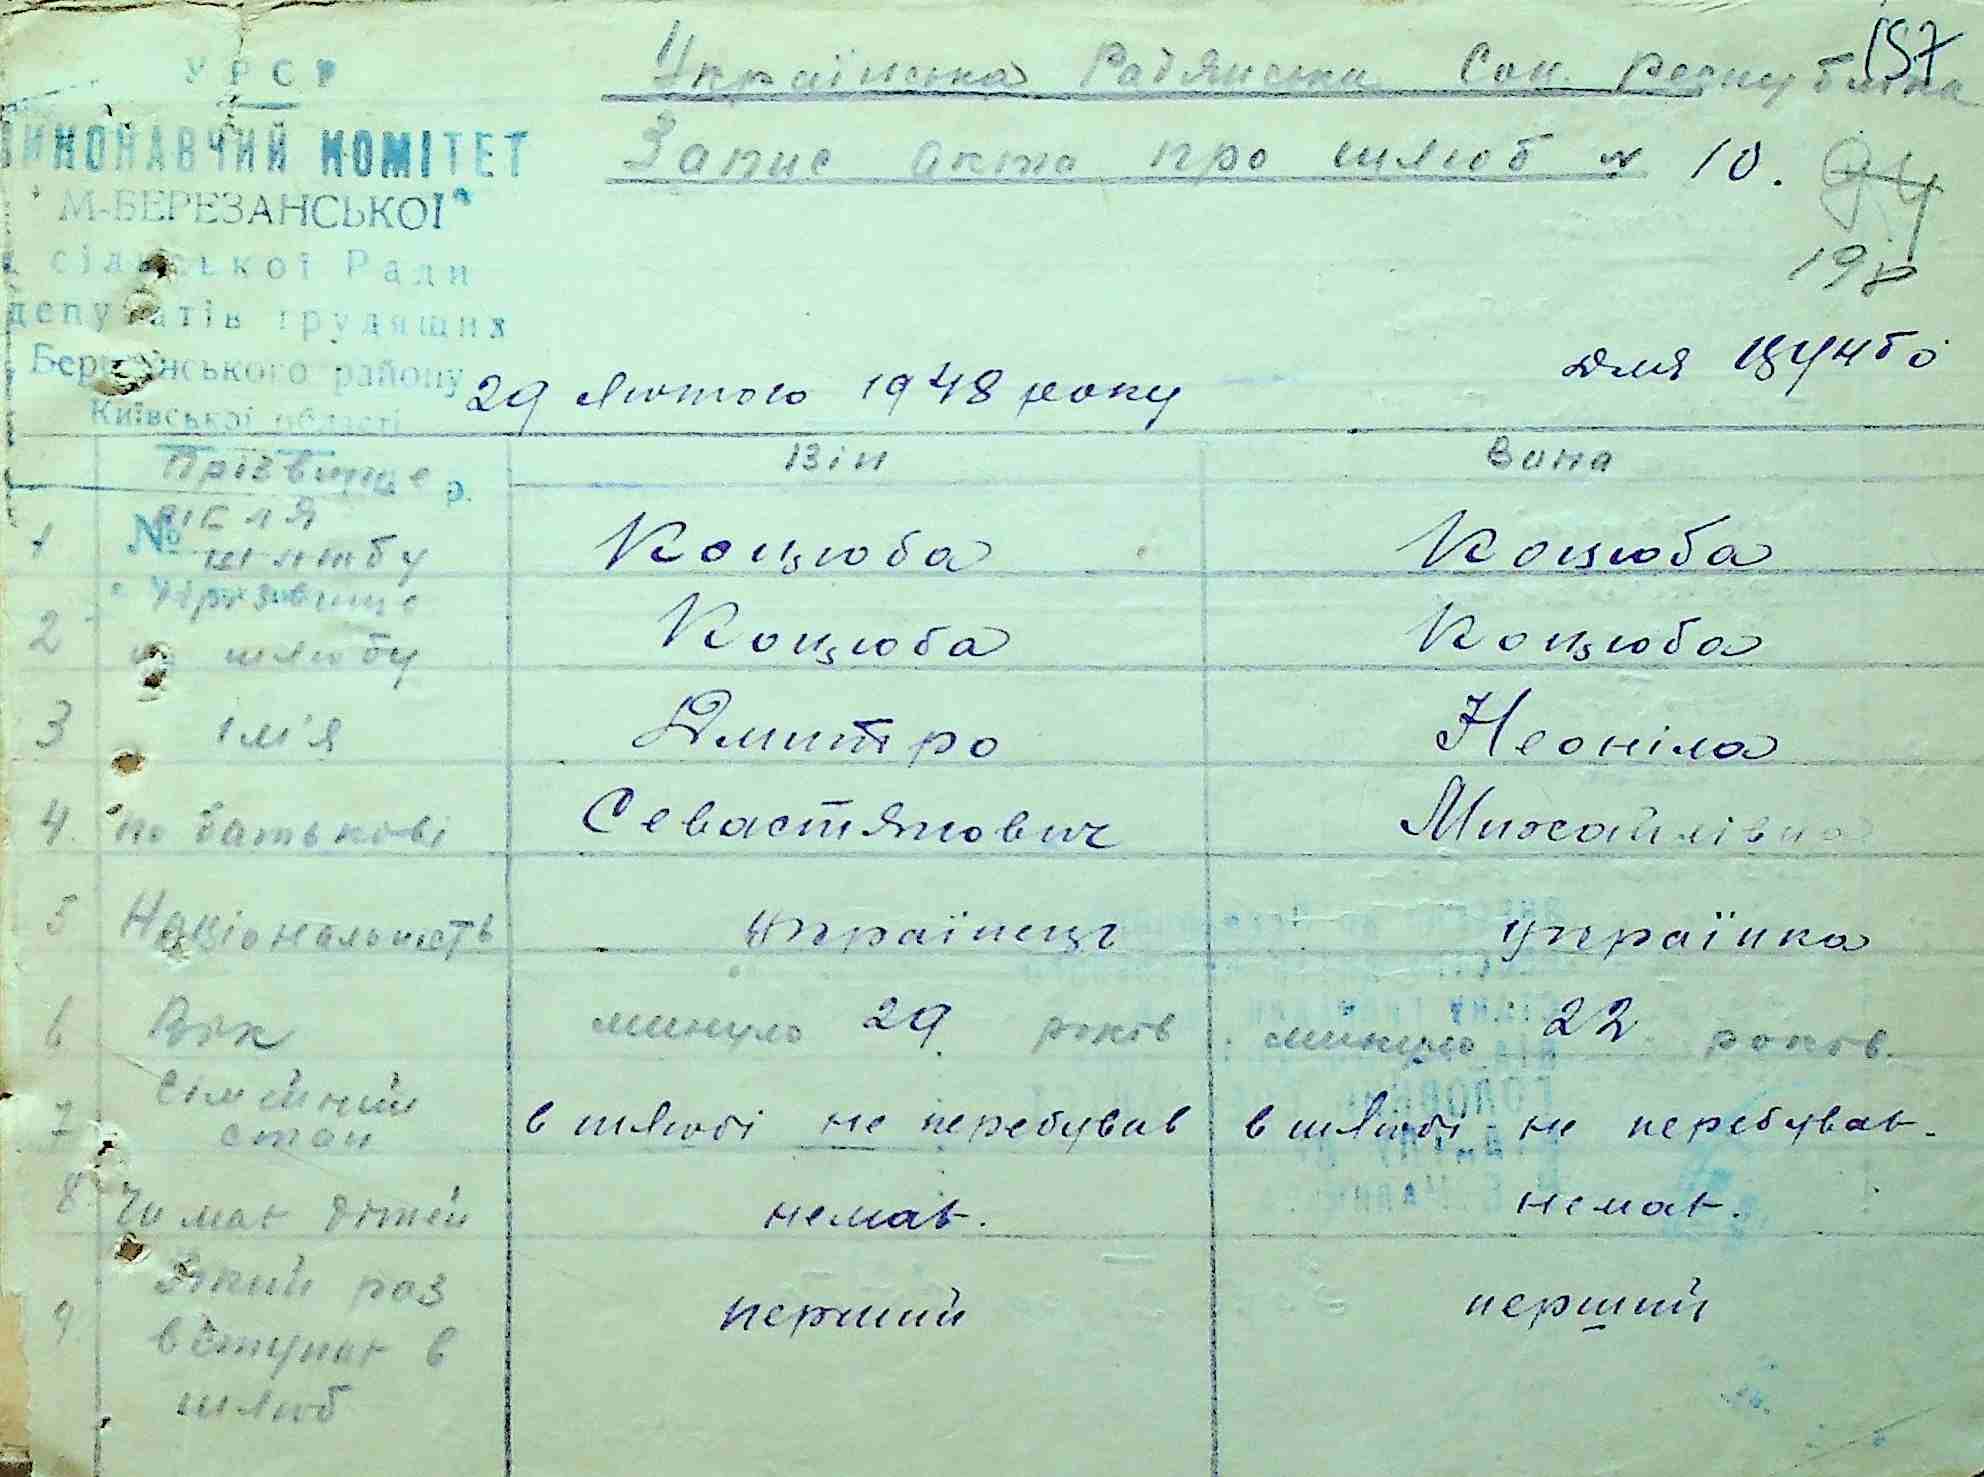 157
Українська Радянська Соц. Республіка
Запис акта про шлюб № 10.
94
198
для ЦУНбо
УРСР
ВИКОНАВЧИЙ КОМІТЕТ
М-БЕРЕЗАНСЬКОЇ
сільської Ради
депутатів трудящих
Березанського району
Київської області
29 лютого 1948 року
р.
№
Він Вона
1 Прізвище після шлюбу Коцюба Коцюба
2 Прізвище до шлюбу Коцюба Коцюба
3 ім'я Дмитро Неоніла
4. по батькові Севастянович Михайлівна
5 Національність українець українка
6 Вік минуло 29 років минуло 22 років.
7 Сімейний стан в шлюбі не перебував в шлюбі не перебував.
8 Чи має дітей немає. немає.
9 Який раз вступає в шлюб перший перший